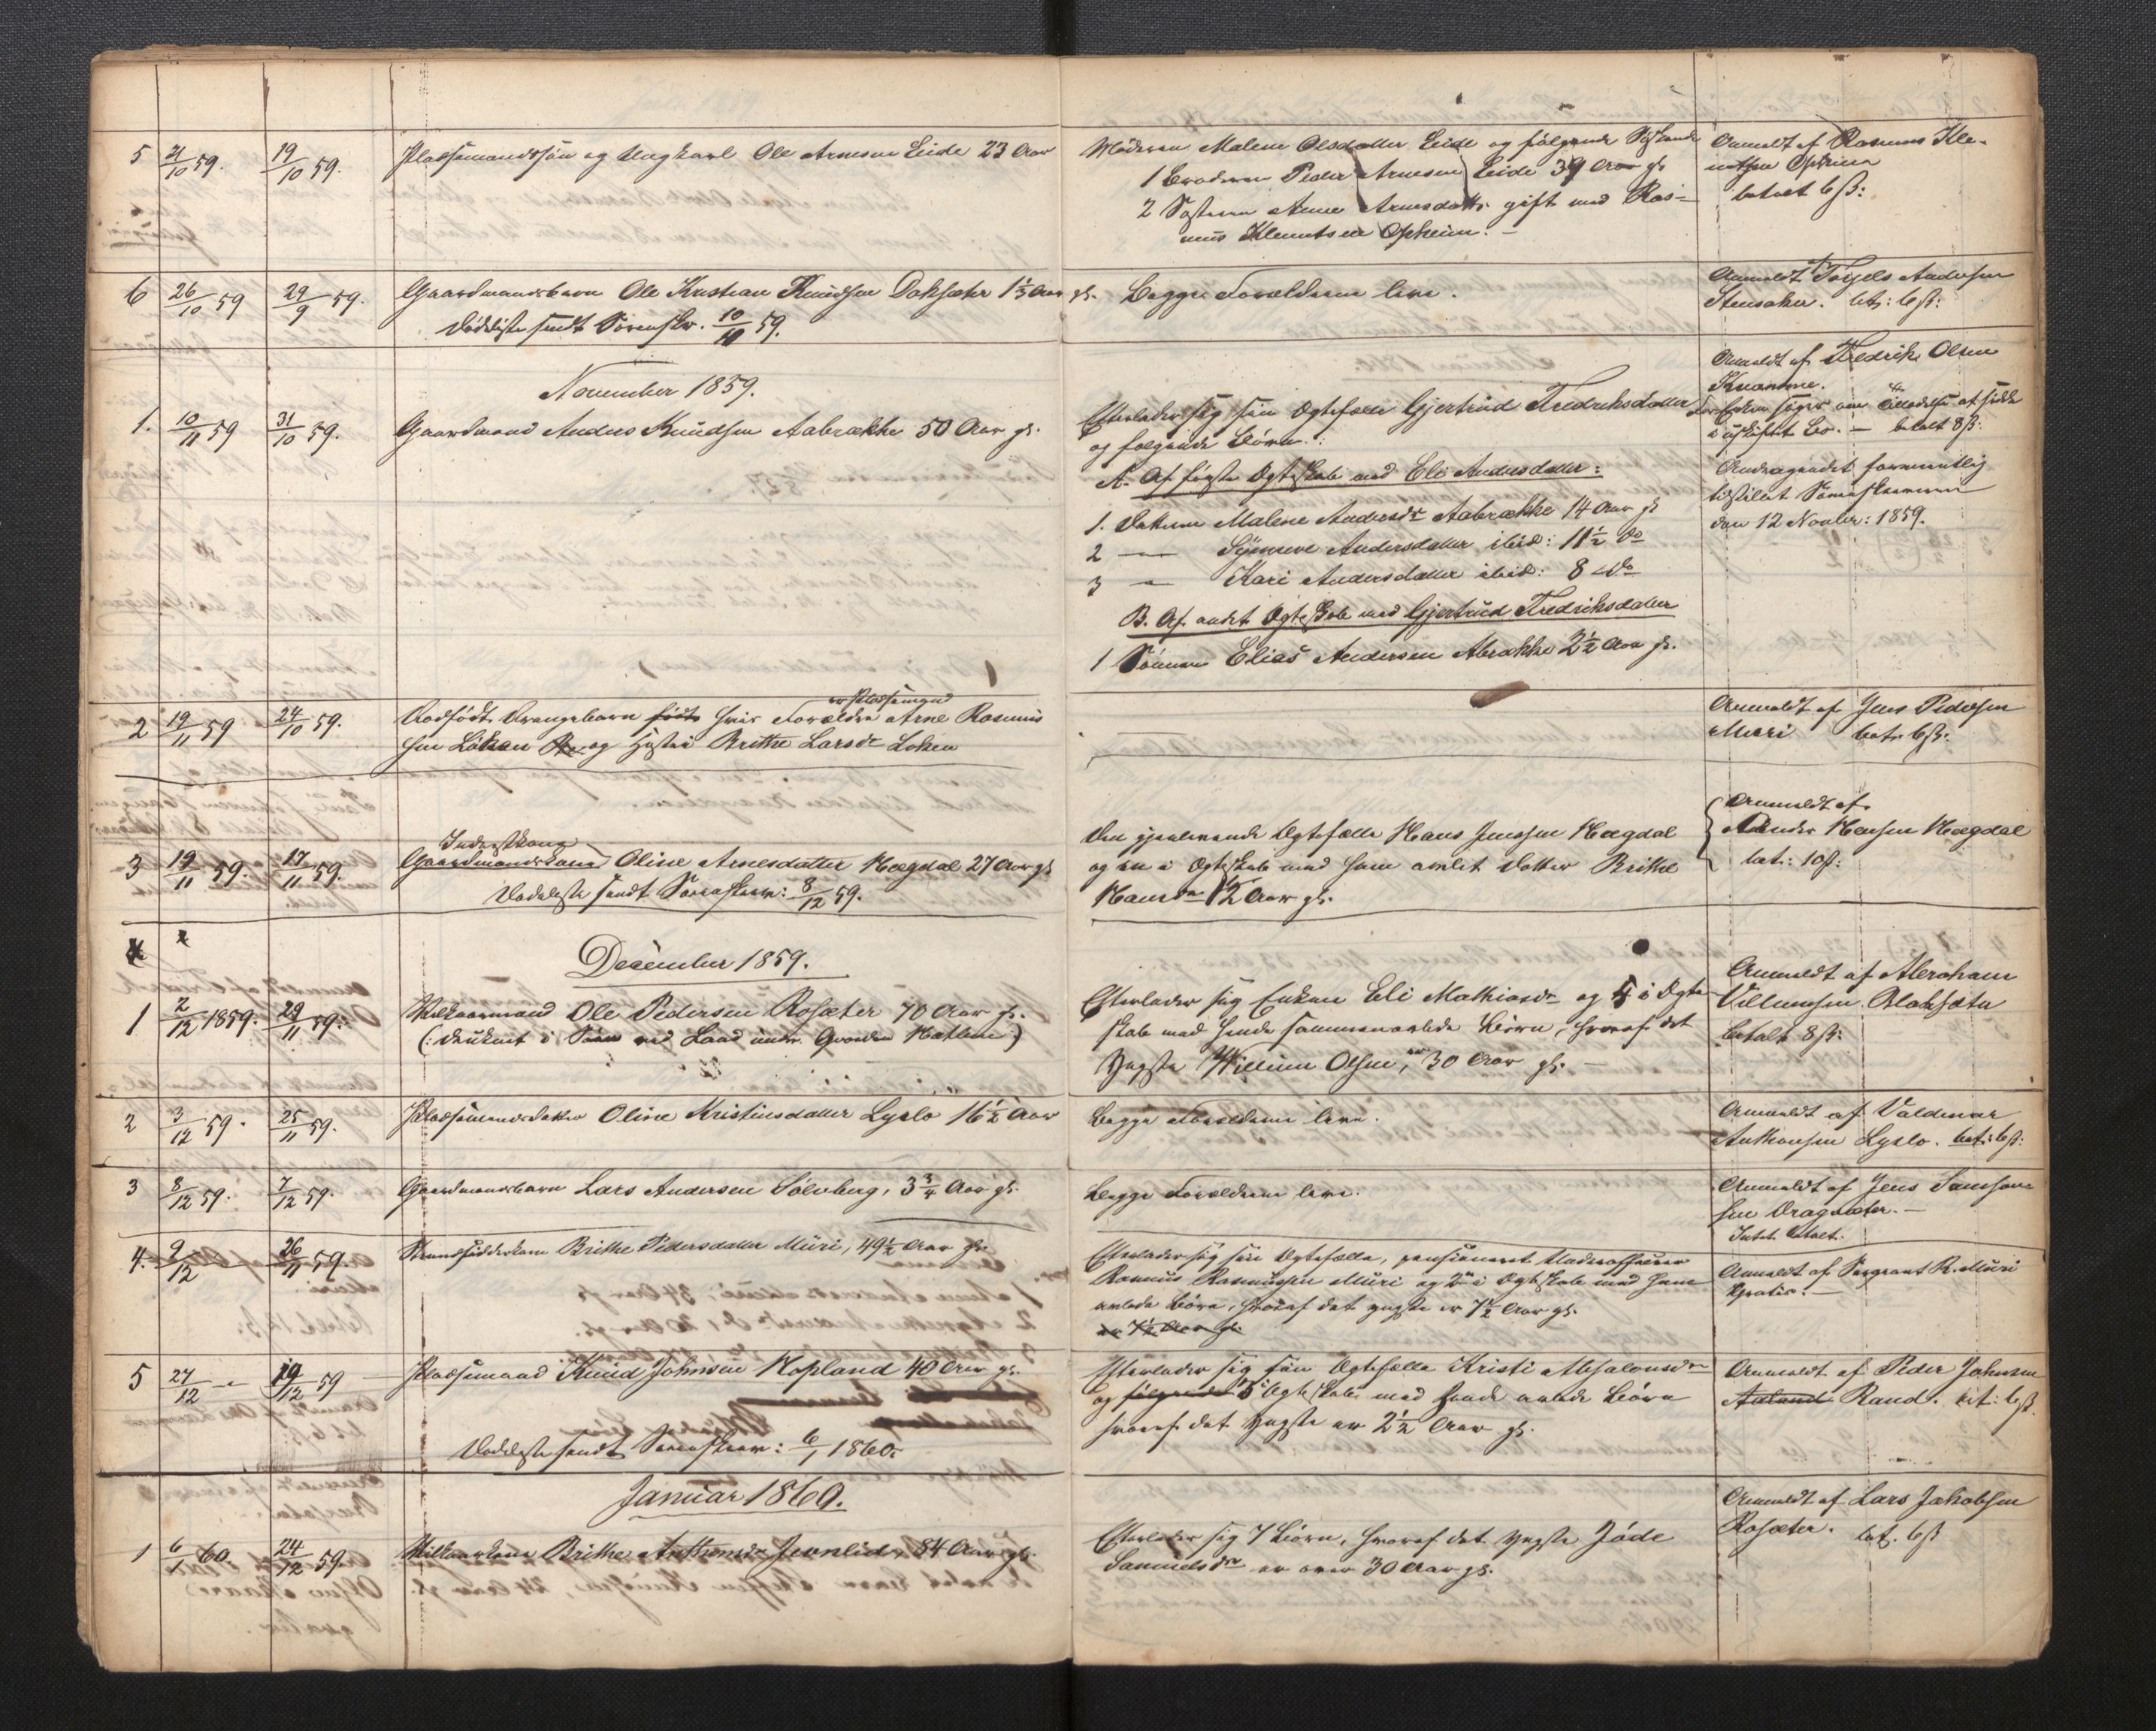 5 21/10 59. 19/10 59. Pladsemandssøn og Ungkarl Ole Arnesen Leide 23 Aar
Moderen Malene Olsdatter Leide og følgende Søskende
1 Broderen Peder Arnesen Leide 39 Aar gl.
2 Søsteren Anne Arnesdatter gift med Ras-
mus Klemetsen Opheim. —
Anmeldt af Rasmus Kle-
metsen Opheim
betalt 6 ß:
6 26/10 59 29/9 59. Gaardmandsbarn Ole Kristian Knudsen Doksæter 1 1/3 Aar gl.
Dødsliste sendt Sorenskr. 10/11 59.
Begge Forældrene leve.
Anmeldt Torgels Andersen
Stensaker. bet: 6 ß:
November 1859.
1. 10/11 59 31/10 59. Gaardmand Anders Knudsen Aabrække 50 Aar gl.
Efterlader sig sin Ægtefælle Gjertrud Fredriksdatter
og følgende Børn:
A. Af første Ægteskab med Eli Andersdatter:
1. Datteren Malene Andersdr Aabrække 14 Aar gl
2 — Synneve Andersdatter ibid: 11 1/2 do
3 — Kari Andersdatter ibid: 8 do
B. Af andet Ægteskab med Gjertrud Fredriksdatter
1 Sønnen Elias Andersen Abrække 2 1/2 Aar gl.
Anmeldt af Fredrik Olsen
Kvamme.
Enken søger om Tilladelse at sidde
i uskiftet Bo. — betalt 8 ß:
Andragendet
tilstillet Sorenskriveren
den 12 Novbr: 1859.
2 19/11 59 24/10 59. Dødfødt Drengebarn født hvis Forældre er Pladsemand Arne Rasmus
sen Løken og Hustru Brithe Larsdr Løken
Anmeldt af Jens Pedersen
Muri bet. 6 ß:
3 19/11 59. 17/11 59. Inderstkone
Gaardmandskone Oline Arnesdatter Hægdal 27 Aar gl
Dødsliste sendt Sorenskriv: 8/12 59.
Den gjenlevende Ægtefælle Hans Jenssen Hægdal
og en i Ægteskab med ham avlet Datter Brithe
Hansdr 1/2 Aar gl.
Anmeldt af
Anders Hansen Hægdal
bet: 10 ß:
December 1859.
1 2/12 1859. 29/11 59. Kaarmand Ole Pedersen Rosæter 70 Aar gl.
(: druknet i Søen ved Land under Gaarden Hatlem:)
Efterlader sig Enken Eli Mathiasdr og 5 i Ægte
skab med hende sammenavlede Børn, hvoraf det
Yngste Willum Olsen, er 30 Aar gl. —
Anmeldt af Abraham
Villumsen Aaboksæter
betalt 8 ß:
2 3/12 59. 25/11 59. Pladsemandsdatter Oline Kristensdatter Lyslo 16 1/2 Aar
Begge Forældrene leve.
Anmeldt af Valdemar
Anthonsen Lyslo. bet: 6 ß:
3 8/12 59. 7/12 59. Gaardmandsbarn Lars Andersen Sølvberg, 3 3/4 Aar gl.
Begge Forældrene leve.
Anmeldt af Jens Samson
sen Dragsæter. —
Intet betalt.
4. 9/12 26/11 59. Strandsidderkone Brithe Pedersdatter Muri, 49 1/2 Aar gl.
Efterlader sig sin Ægtefælle, pensioneret Underofficeer
Rasmus Rasmussen Muri og 2 i Ægteskab med ham
avlede Børn, hvoraf det yngste er 7 1/2 Aar gl.
er 7 1/2 Aar gl.
Anmeldt af Sergeant R. Muri
Gratis. —
5 27/12 — 19/12 59 Pladsemand Knud Johnsen Hopland 40 Aar gl.
Dødsliste sendt Sorenskriv: 6/1 1860.
Efterlader sig sin Ægtefælle Kristi Absalonsdr
og følgende 5 i Ægteskab med hende avlede Børn
hvoraf det yngste er 2 1/2 Aar gl.
Anmeldt af Peder Johnsen
Aaland Rand. bet: 6 ß.
Januar 1860.
1 6/1 60 24/12 59. Kaarkone Brithe Anthonsdr Jevnlider 84 Aar gl.
Efterlader sig 7 Børn, hvoraf det yngste Jøde
Samuelsdr er over 30 Aar gl.
Anmeldt af Lars Jakobsen
Rosæter. bet. 6 ß